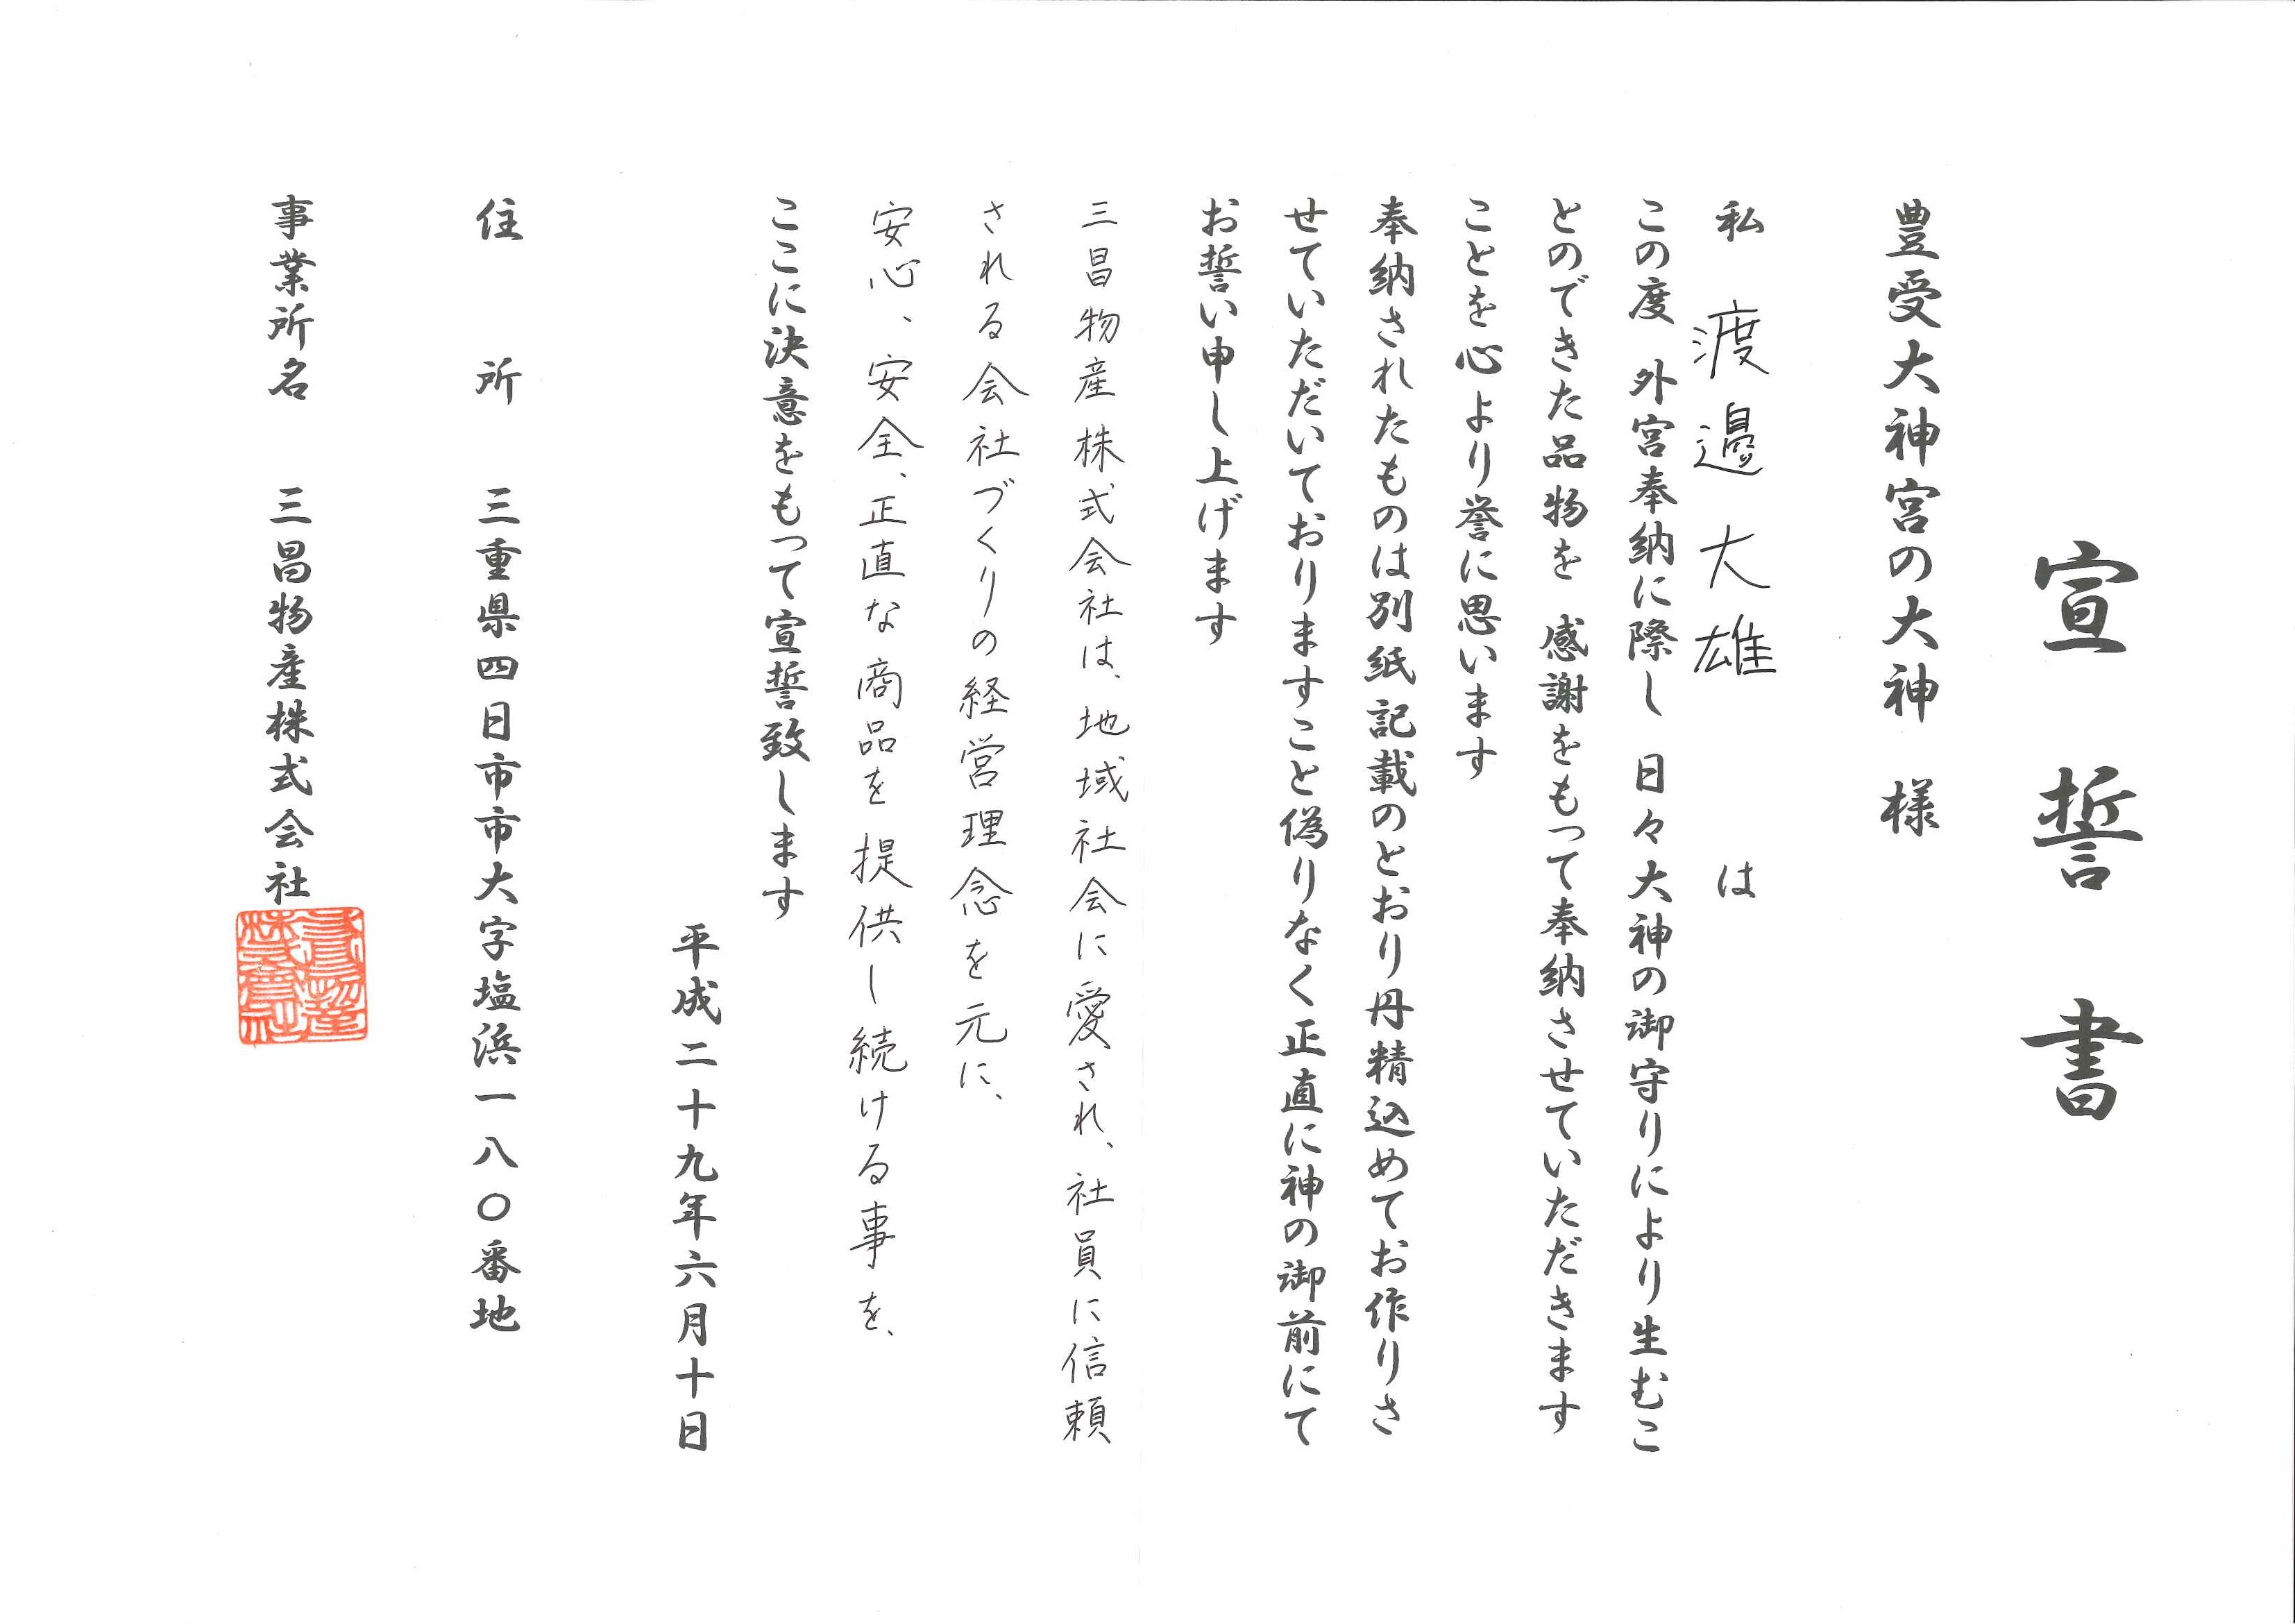 宣誓書
豊受大神宮の大神 様
私 渡邉大雄 は
この度 外宮奉納に際し 日々大神の御守りにより生むこ
とのできた品物を 感謝をもって奉納させていただきます
ことを心より誉に思います
奉納されたものは別紙記載のとおり丹精込めてお作りさ
せていただいておりますこと偽りなく正直に神の御前にて
お誓い申し上げます
三昌物産株式会社は、地域社会に愛され、社員に信頼
される会社づくりの経営理念を元に、
安心、安全、正直な商品を提供し続ける事を、
ここに決意をもって宣誓致します
平成二十九年六月十日
住 所 三重県四日市市大字塩浜一八〇番地
事業所名 三昌物産株式会社